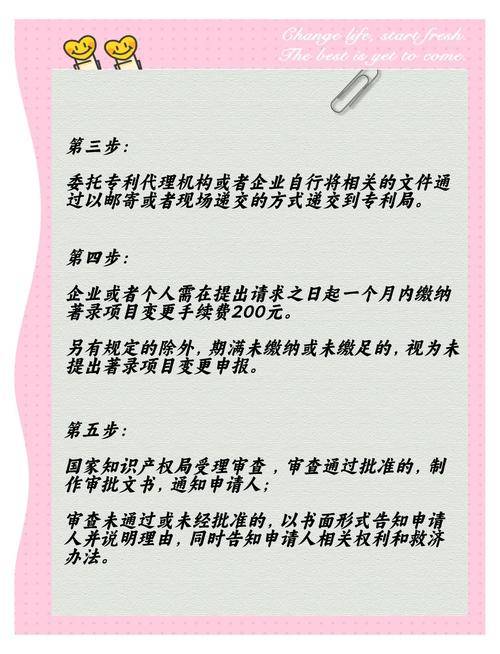 Change life, start fresh.
The best is yet to come.
第三步：
委托专利代理机构或者企业自行将相关的文件通
过以邮寄或者现场递交的方式递交到专利局。
第四步：
企业或者个人需在提出请求之日起一个月内缴纳
著录项目变更手续费200元。
另有规定的除外，期满未缴纳或未缴足的，视为未
提出著录项目变更申报。
第五步：
国家知识产权局受理审查 ，审查通过批准的，制
作审批文书，通知申请人；
审查未通过或未经批准的，以书面形式告知申请
人并说明理由，同时告知申请人相关权利和救济
办法。